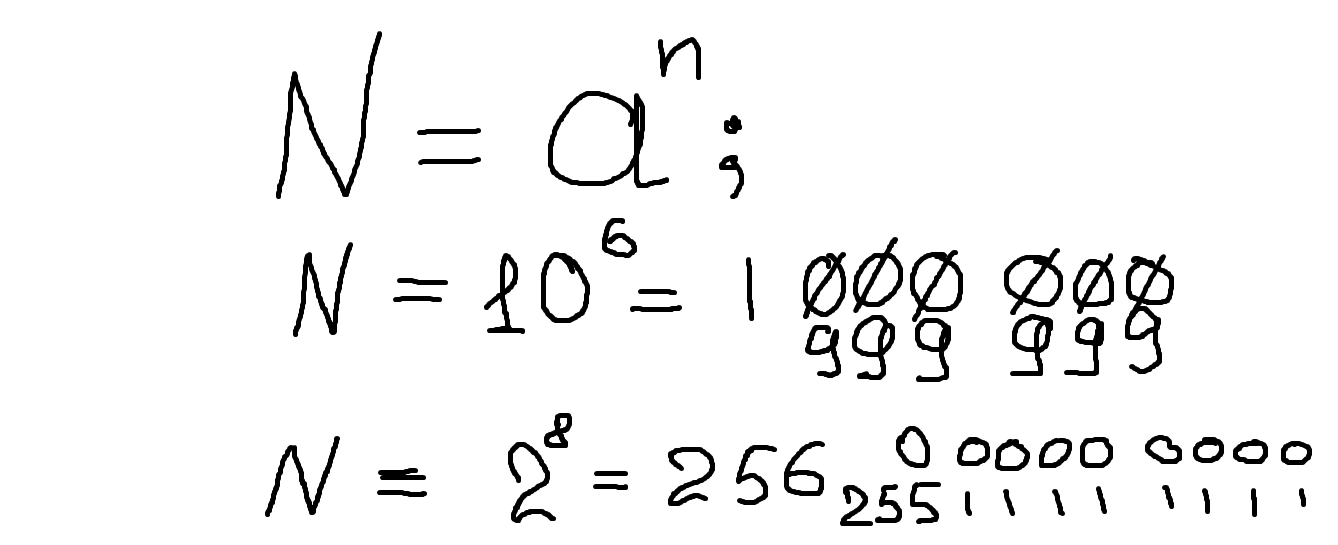 N = aⁿ;
N = 10⁶ = 1 000 000
999 999
N = 2⁸ = 256 0 0000 0000
255 1111 1111